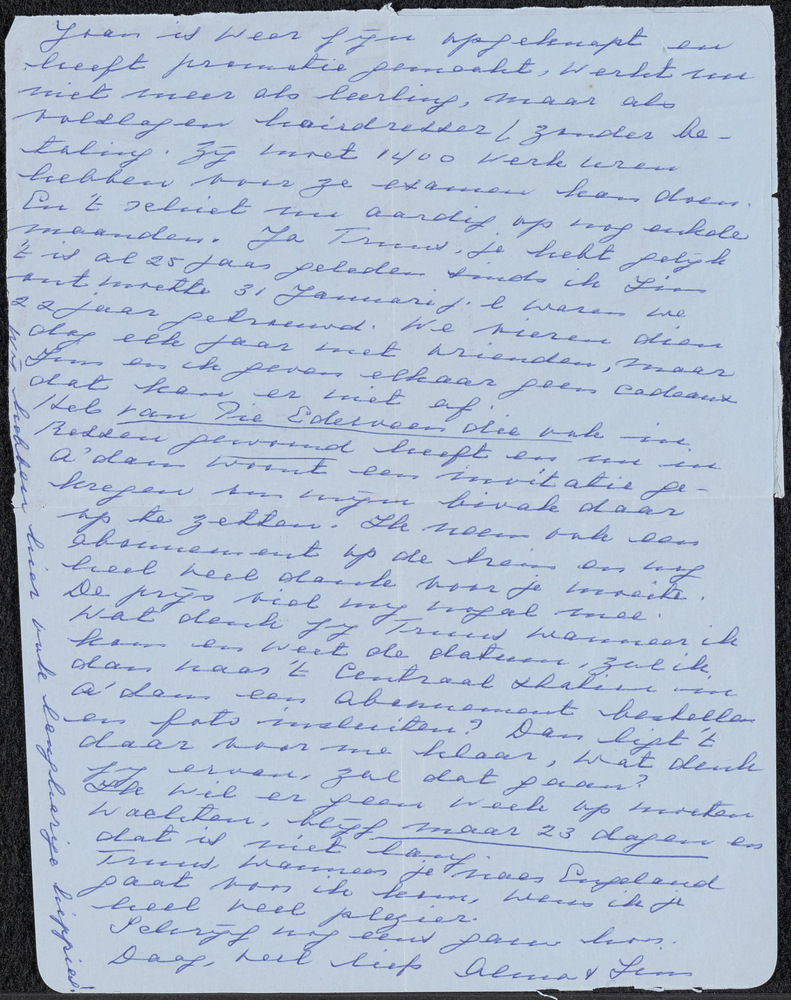 Joan is weer fijn opgeknapt en
heeft promotie gemaakt, werkt nu
niet meer als leerling, maar als
volslagen hairdresser (zonder be-
taling. Zij moet 1400 werk uren
hebben voor ze examen kan doen.
En 't schiet nu aardig op nog enkele
maanden. Ja Truus, je hebt gelijk
't is al 25 jaar geleden sinds ik Jim
ontmoette 31 Januari j.l waren we
22 jaar getrouwd. We vieren dien
dag elk jaar met vrienden, maar
Jim en ik geven elkaar geen cadeaux
dat kan er niet af.
Heb van Pie Edelveen die ook in
Ressen gewoond heeft en nu in
A'dam woont een invitatie ge-
kregen om mijn bivak daar
op te zetten. Ik neem ook een
abonnement op de trein en nog
heel veel dank voor je moeite.
De prijs viel mij nogal mee.
Wat denk jij Truus wanneer ik
kom en weet de datum, zal ik
dan naar 't Centraal station in
A'dam een abonnement bestellen
en foto insluiten? Dan ligt 't
daar voor me klaar, wat denk
jij ervan, zal dat gaan?
Ik wil er geen week op moeten
wachten, blijf maar 23 dagen en
dat is niet lang.
Truus, wanneer je naar Engeland
gaat voor ik kom, wens ik je
heel veel plezier.
Schrijf nog eens gauw hoor.
Daag, veel liefs Alma & Jim
Wij hebben hier ook langharige hippies!